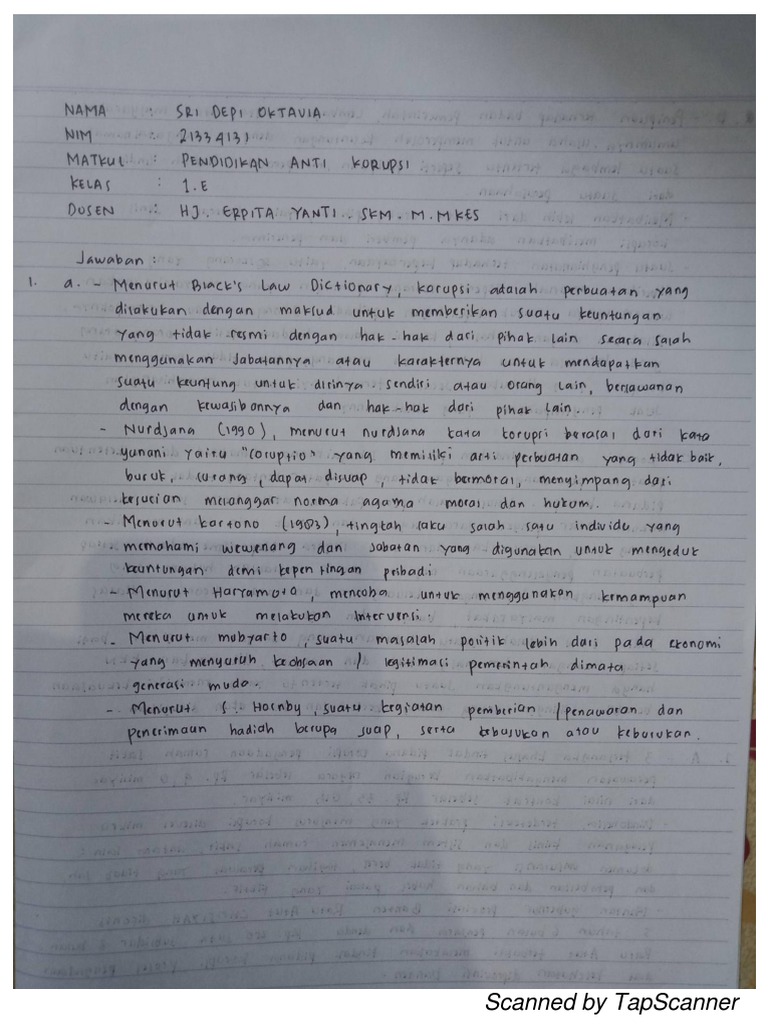 NAMA : SRI DEPI OKTAVIA
NIM : 21334131
MATKUL : PENDIDIKAN ANTI KORUPSI
KELAS : 1.E
DOSEN : HJ. ERPITA YANTI. SKM. M.MKES
Jawaban :
1. a. - Menurut Black's Law Dictionary, korupsi adalah perbuatan yang
dilakukan dengan maksud untuk memberikan suatu keuntungan
yang tidak resmi dengan hak-hak dari pihak lain secara salah
menggunakan Jabatannya atau karakternya untuk mendapatkan
suatu keuntung untuk dirinya sendiri atau orang lain, berlawanan
dengan kewajibannya dan hak-hak dari pihak lain.
- Nurdjana (1990), menurut nurdjana kata korupsi berasal dari kata
yunani yaitu "coruptio" yang memiliki arti perbuatan yang tidak baik,
buruk, curang, dapat disuap, tidak bermoral, menyimpang dari
kesucian melanggar norma agama moral dan hukum.
- Menurut kartono (1983), tingkah laku salah satu individu yang
memahami wewenang dan Jabatan yang digunakan untuk mengeduk
keuntungan demi kepentingan pribadi
- Menurut Haryamoto, mencoba untuk menggunakan kemampuan
mereka untuk melakukan Intervensi.
- Menurut mubyarto, suatu masalah politik lebih dari pada ekonomi
yang menyuruh / legitimasi pemerintah dimata
generasi muda.
- Menurut S. Hornby, suatu kegiatan pemberian / penawaran dan
penerimaan hadiah berupa suap, serta kebusukan atau keburukan.
Scanned by TapScanner